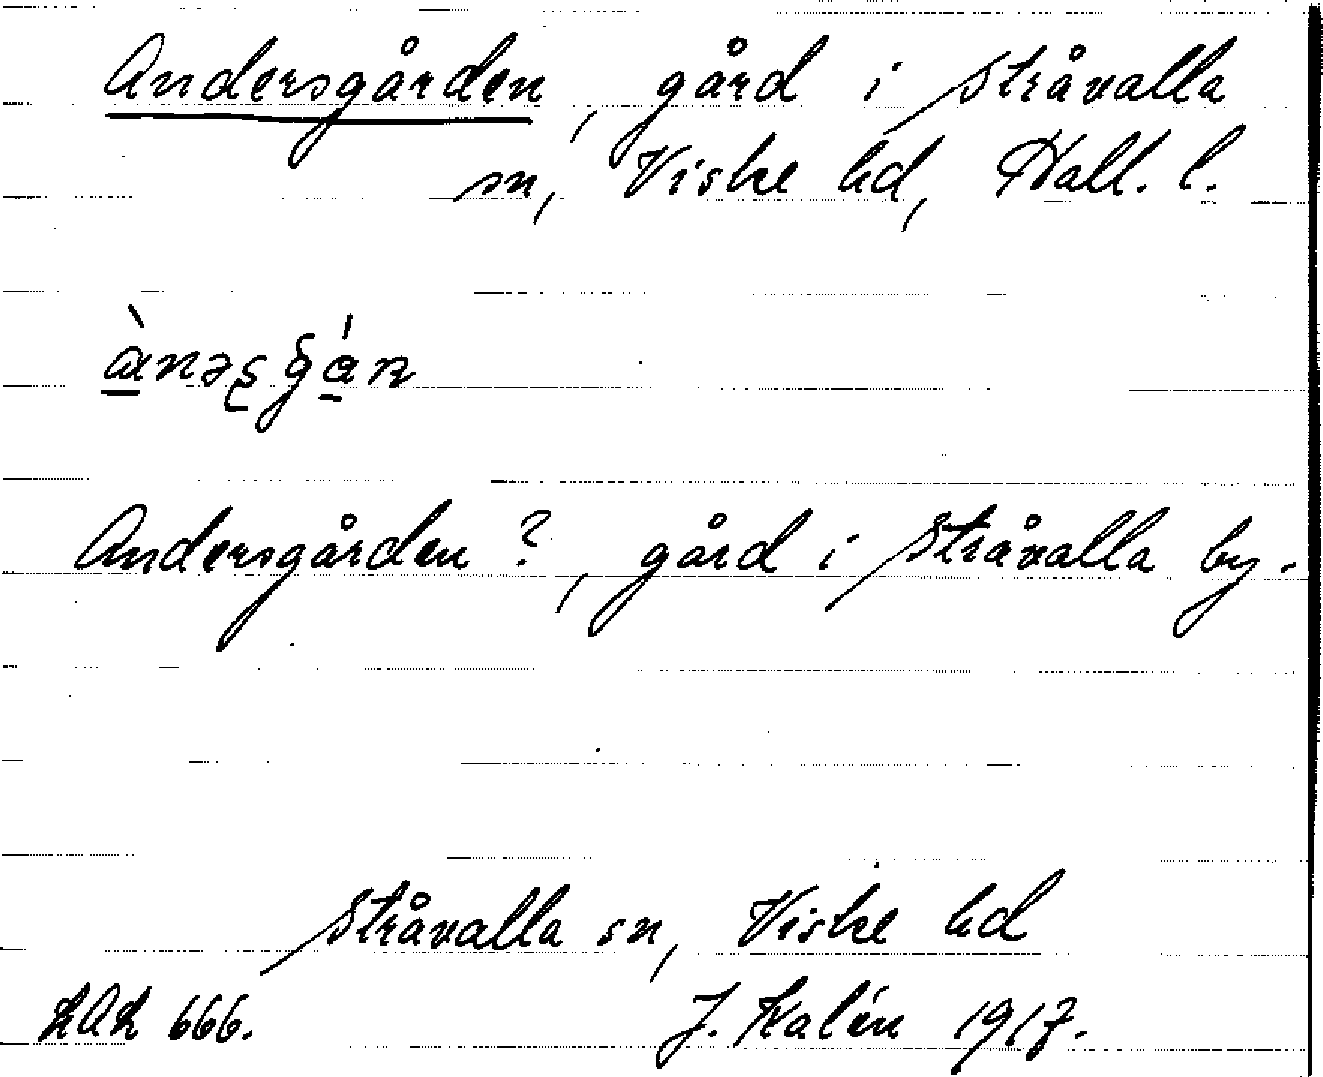 Andersgården, gård i Stråvalla
sn, Viske hd, Hall. l.
Andersgården?, gård i Stråvalla by.
Stråvalla sn, Viske hd
666.
J. Kalén 1917.